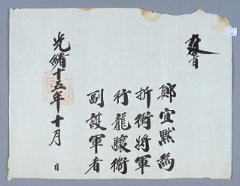 鄭宜默為
折衝將軍
行龍驤衛
副護軍者
光緒十五年十月 日